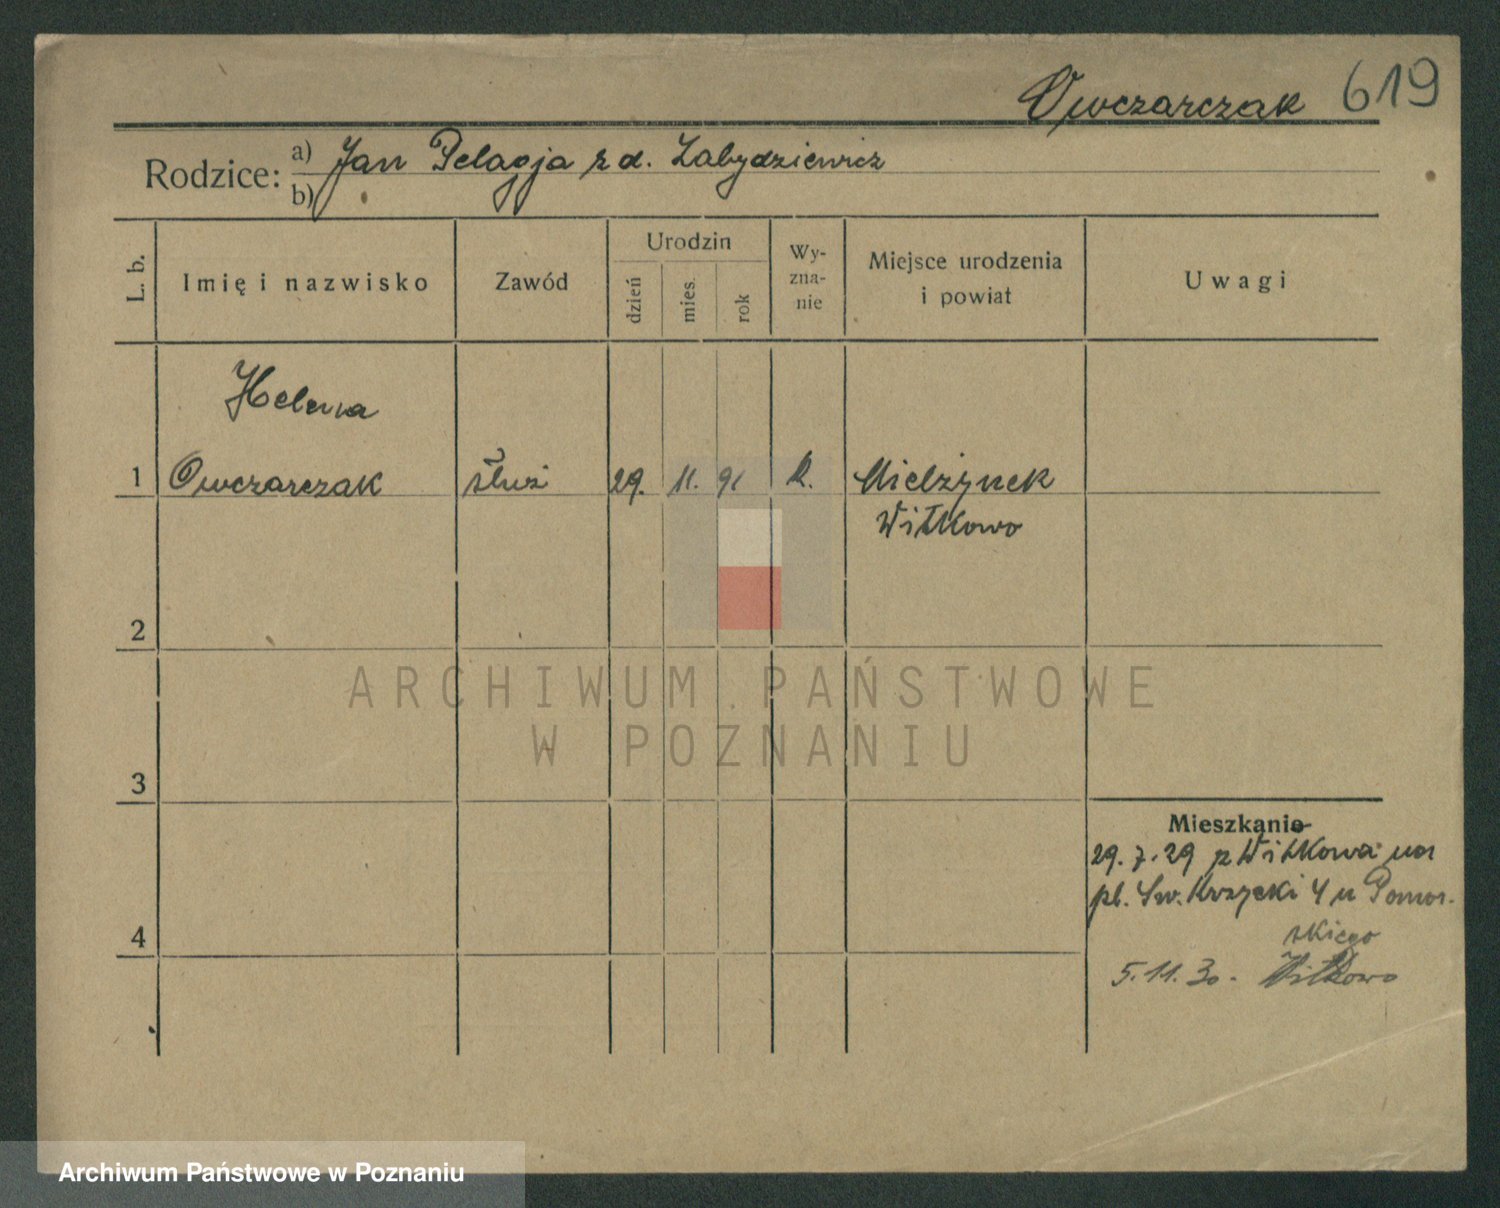 Owczarczak 619
Rodzice: a) Jan Pelagja z d. Zabydziewicz
b)
L. b.
Imię i nazwisko
Zawód
Urodzin
dzień
mies.
rok
Wy-
zna-
nie
Miejsce urodzenia
i powiat
Uwagi
Helena
1 Owczarczak służ 29. 11. 91 k. Mielżynek
Witkowo
2
3
4
Mieszkanie
29. 7. 29 z Witkowa na
pl. Św. Krzyski 4 u Pomor-
skiego
5. 11. 30. Witkowo
ARCHIWUM PAŃSTWOWE
W POZNANIU
Archiwum Państwowe w Poznaniu